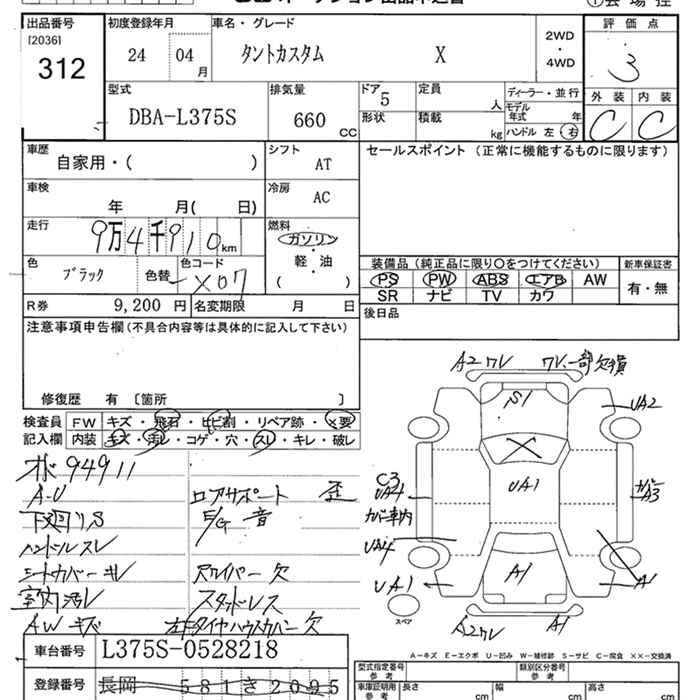 出品番号
[2036]
312
初度登録年月
24 04月
車名・グレード
タントカスタム X
2WD
・
4WD
評価点
3
外装 内装
C C
型式
DBA-L375S
排気量
660 CC
ドア
5
形状
定員
人
積載
kg
ディーラー・並行
モデル年式 年
ハンドル 左 右
車歴
自家用・( )
シフト
AT
車検
年 月( 日)
冷房
AC
走行
9万4千910km
燃料
ガソリン
軽・油
( )
色
ブラック
色替
色コード
X07
R券 9,200 円
名変期限 月 日
セールスポイント (正常に機能するものに限ります)
装備品 (純正品に限り○をつけてください)
PS PW ABS エアB AW
SR ナビ TV カワ
新車保証書
有・無
後日品
注意事項申告欄(不具合内容等は具体的に記入して下さい)
修復歴 有 〔箇所 〕
検査員記入欄
FW キズ・飛石・ヒビ割・リペア跡・×要
内装 キズ・汚レ・コゲ・穴・スレ・キレ・破レ
94911
A-U
下廻リS
ハンドルスレ
シートカバーキレ
室内汚レ
AWキズ
ロアサポート 歪
E/G 音
尺ワイパー欠
スタッドレス
右下タイヤハウスカバー欠
A2ワレ
ワレ、一部欠損
S1
UA2
UA1
C3
UA4
カバー車内
カバーA3
UA4
UA1
A1
A1
A2ワレ
A1
スペア
A-キズ E-エクボ U-凹み W-補修跡 S-サビ C-腐食 XX-交換済
車台番号 L375S-0528218
登録番号 長岡 581 き 2095
型式指定番号
参考
類別区分番号
車庫証明用
参考
長さ cm
幅 cm
高さ cm